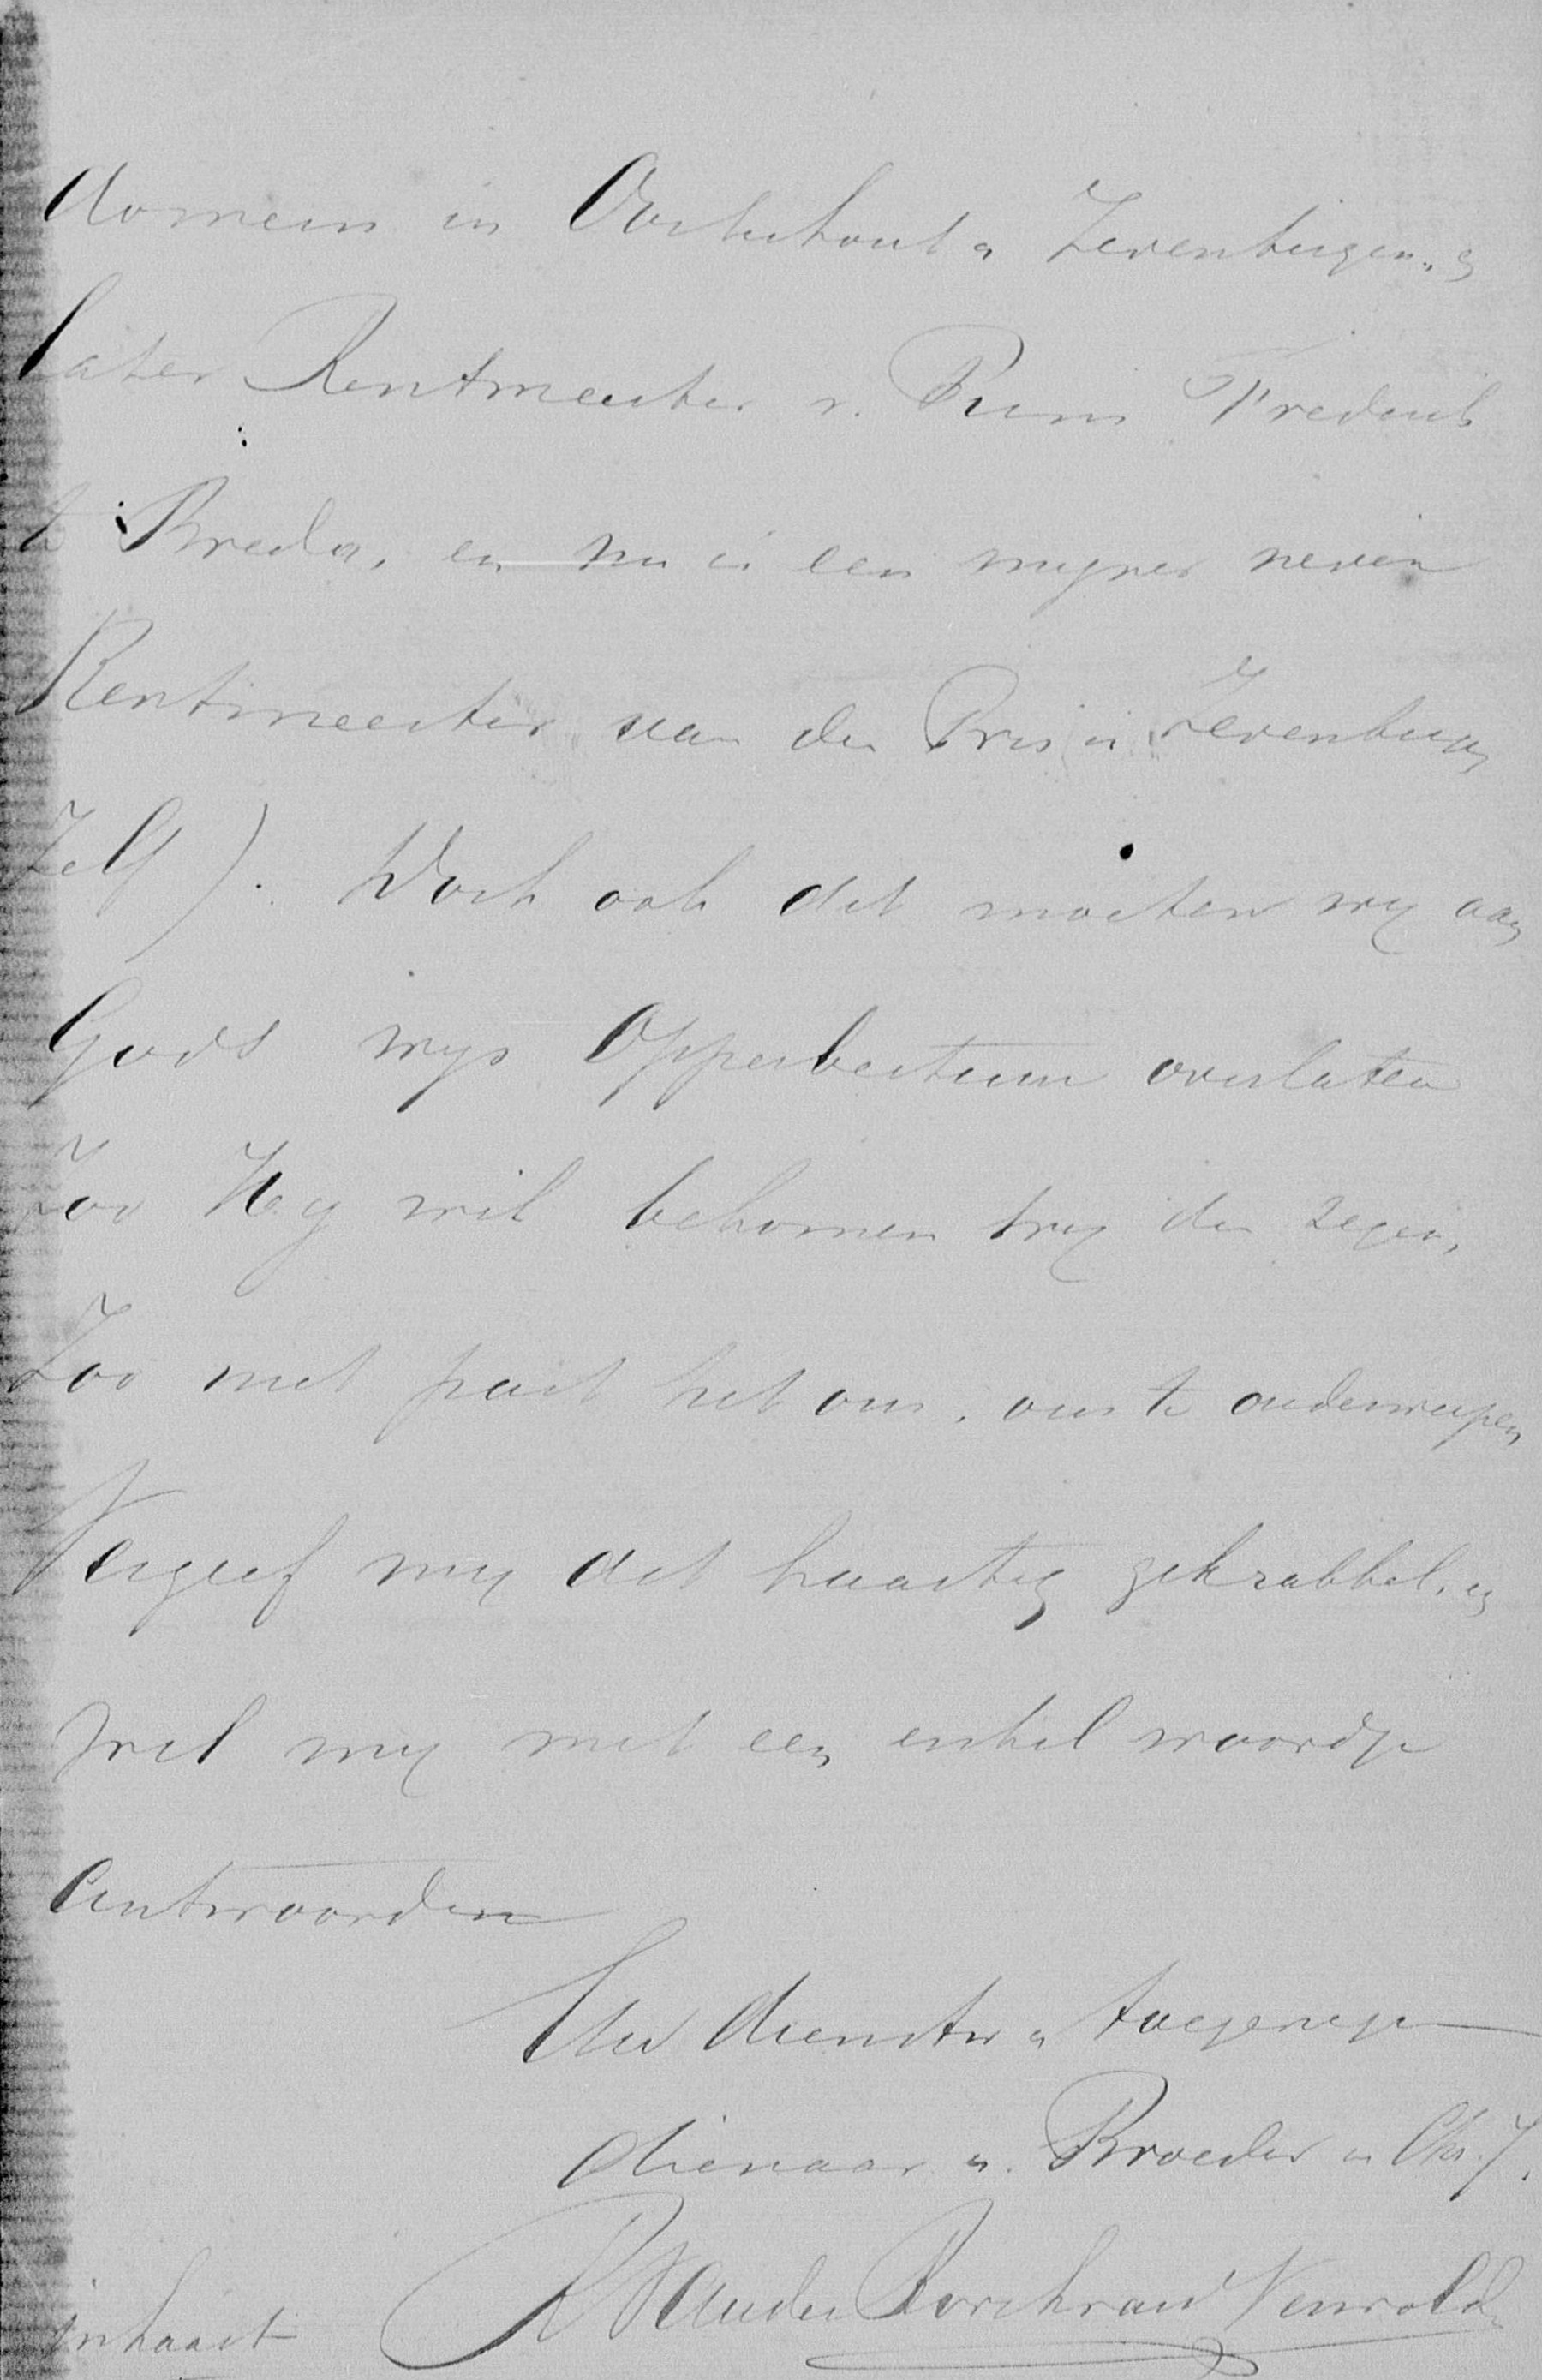 domein in Oosterhout & Zevenbergen, &
later Rentmeester v. Prins Frederik
te Breda, en nu is een mijner neven
Rentmeester van den Prins in Zevenbergen
zelf). Doch ook dit moeten wij aan
Gods wijs Opperbestuur overlaten
Zoo Hij wil bekomen wij den zegen,
Zoo niet past het ons, ons te onderwerpen
Vergeef mij dit haastig gekrabbel, en
wil mij met een enkel woordje
antwoorden
Uw dienstw & toegenegen
dienaar & Broeder in Chr. J.
in haast van der Borch van Verwolde